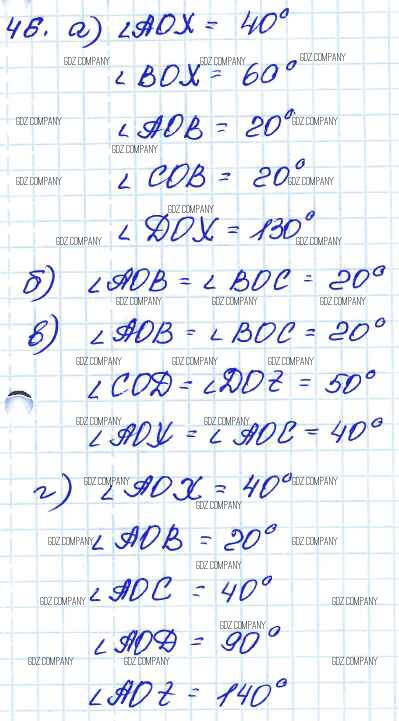 46. а) ∠AOX = 40°
GDZ.COMPANY GDZ.COMPANY GDZ.COMPANY
∠BOX = 60°
GDZ.COMPANY GDZ.COMPANY
∠AOB = 20°
GDZ.COMPANY
GDZ.COMPANY GDZ.COMPANY
∠COB = 20°
GDZ.COMPANY
∠DOX = 130°
GDZ.COMPANY GDZ.COMPANY
б) ∠AOB = ∠BOC = 20°
GDZ.COMPANY GDZ.COMPANY GDZ.COMPANY
в) ∠AOB = ∠BOC = 20°
GDZ.COMPANY GDZ.COMPANY GDZ.COMPANY
∠COD = ∠DOZ = 50°
GDZ.COMPANY GDZ.COMPANY
∠AOX = ∠AOC = 40°
г) ∠AOX = 40°
GDZ.COMPANY GDZ.COMPANY
GDZ.COMPANY
∠AOB = 20°
GDZ.COMPANY GDZ.COMPANY
GDZ.COMPANY
∠AOC = 40°
GDZ.COMPANY GDZ.COMPANY
GDZ.COMPANY
∠AOD = 90°
GDZ.COMPANY GDZ.COMPANY GDZ.COMPANY
∠AOZ = 140°